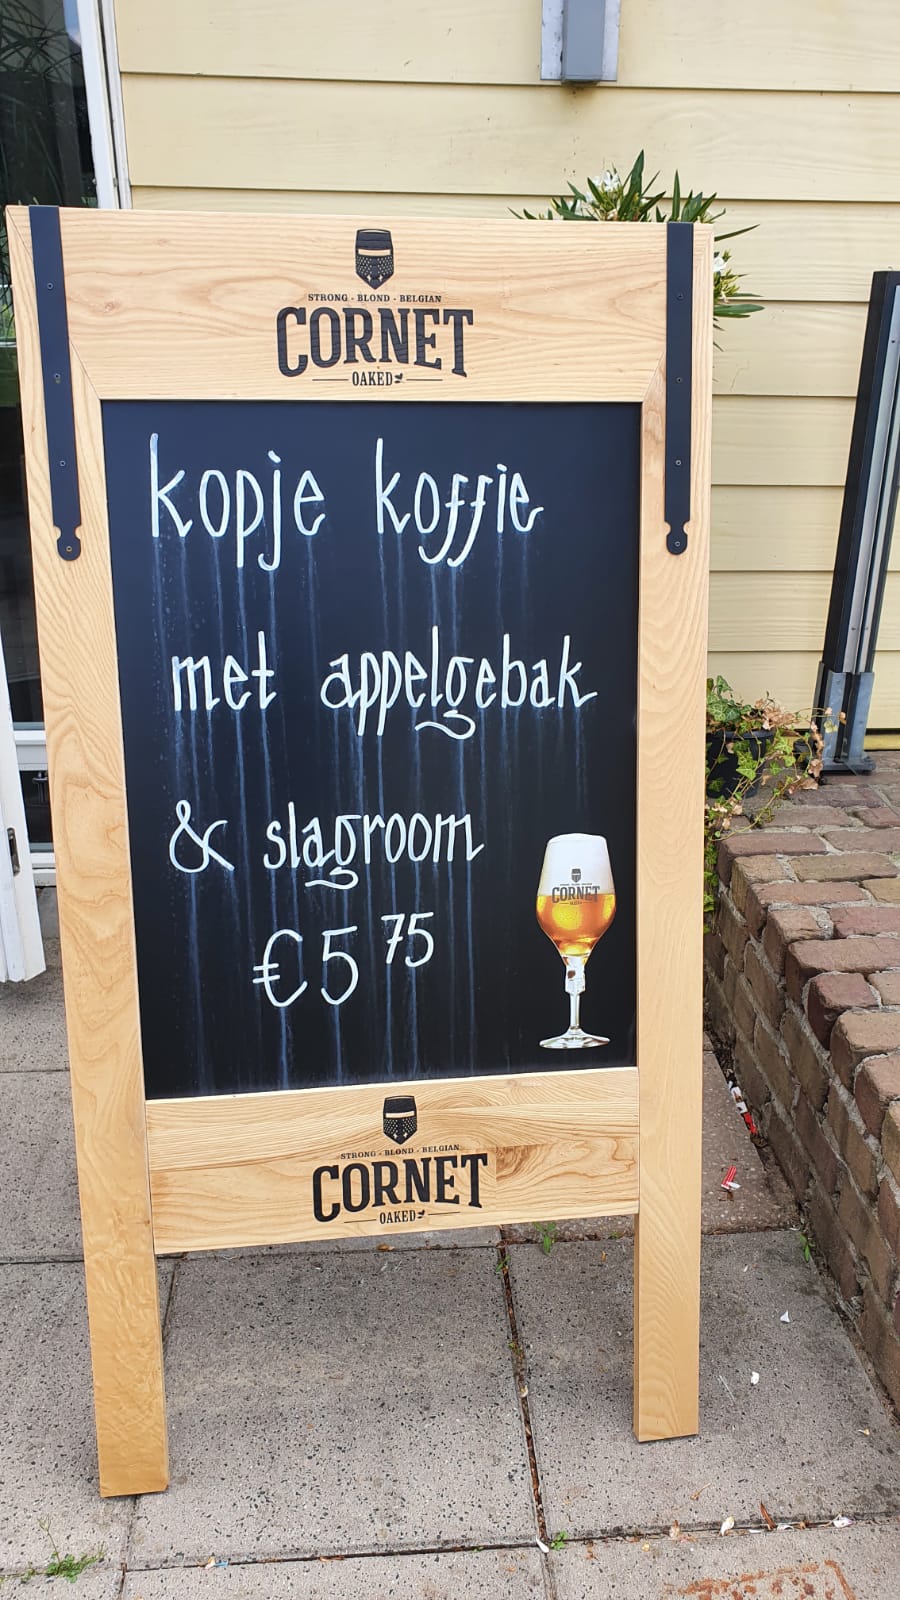 STRONG - BLOND - BELGIAN
CORNET
OAKED
kopje koffie
met appelgebak
& slagroom
€5 75
CORNET
STRONG - BLOND - BELGIAN
CORNET
OAKED